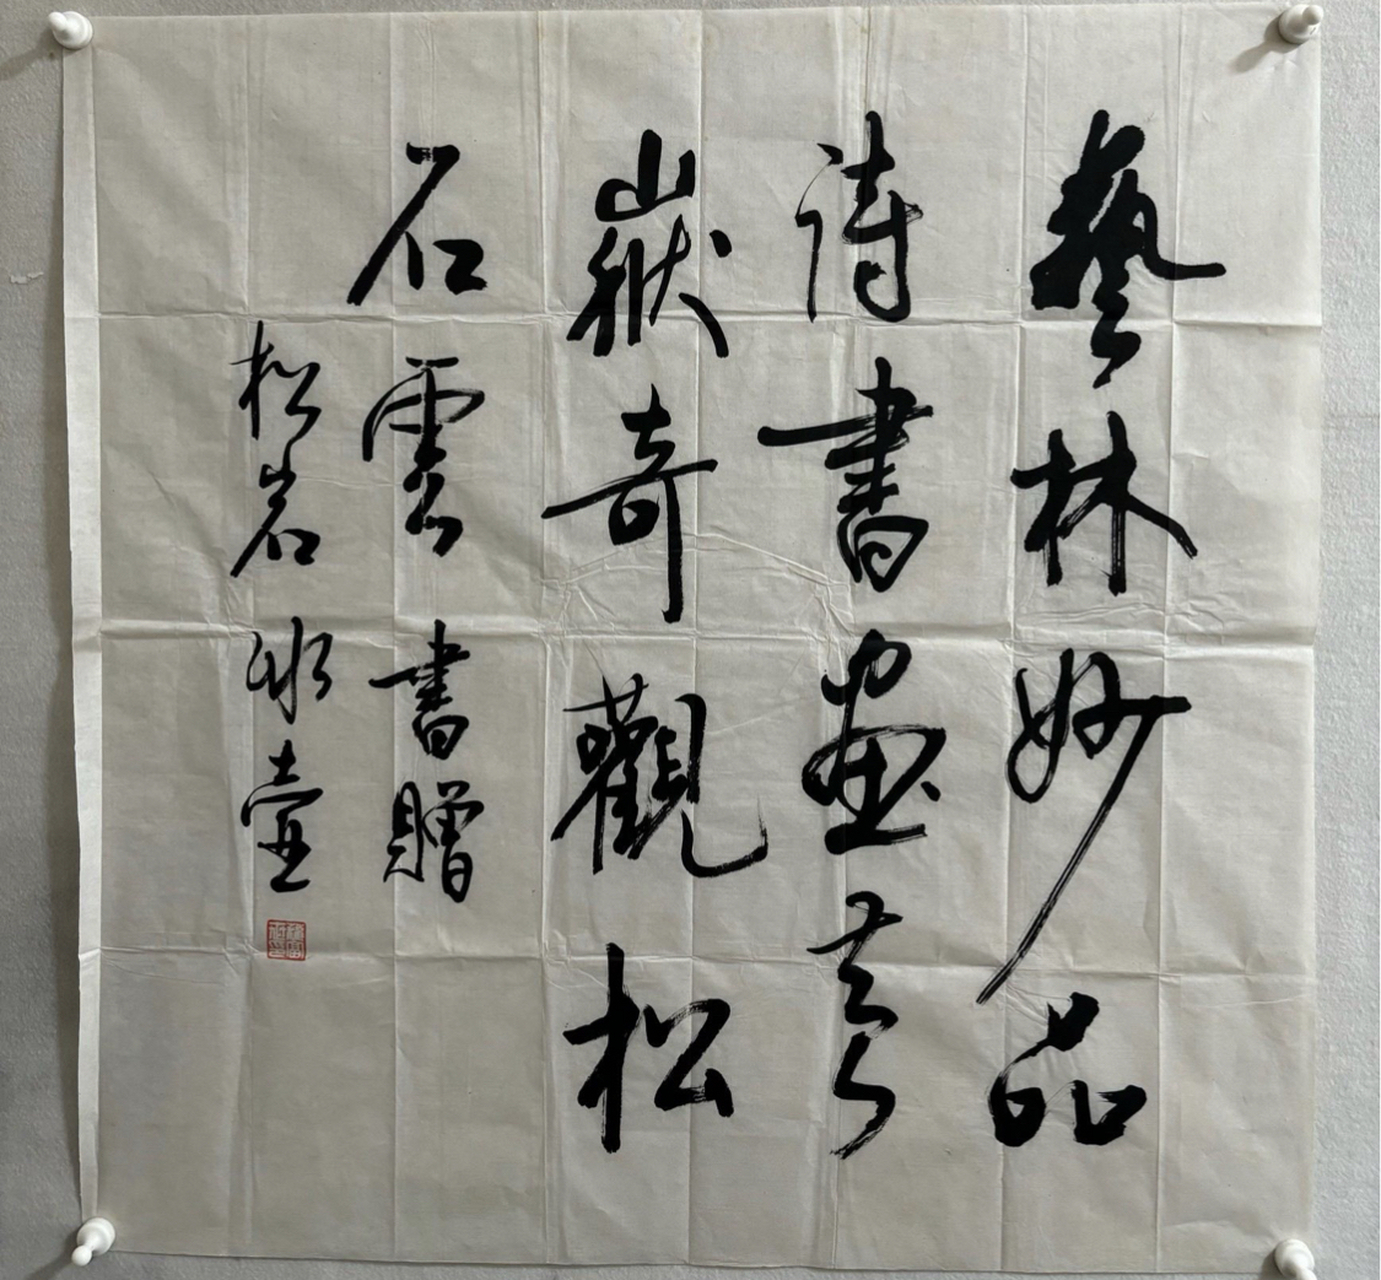 藝林妙品
詩書畫
嶽奇觀松
石雲書贈
松岩冰壺